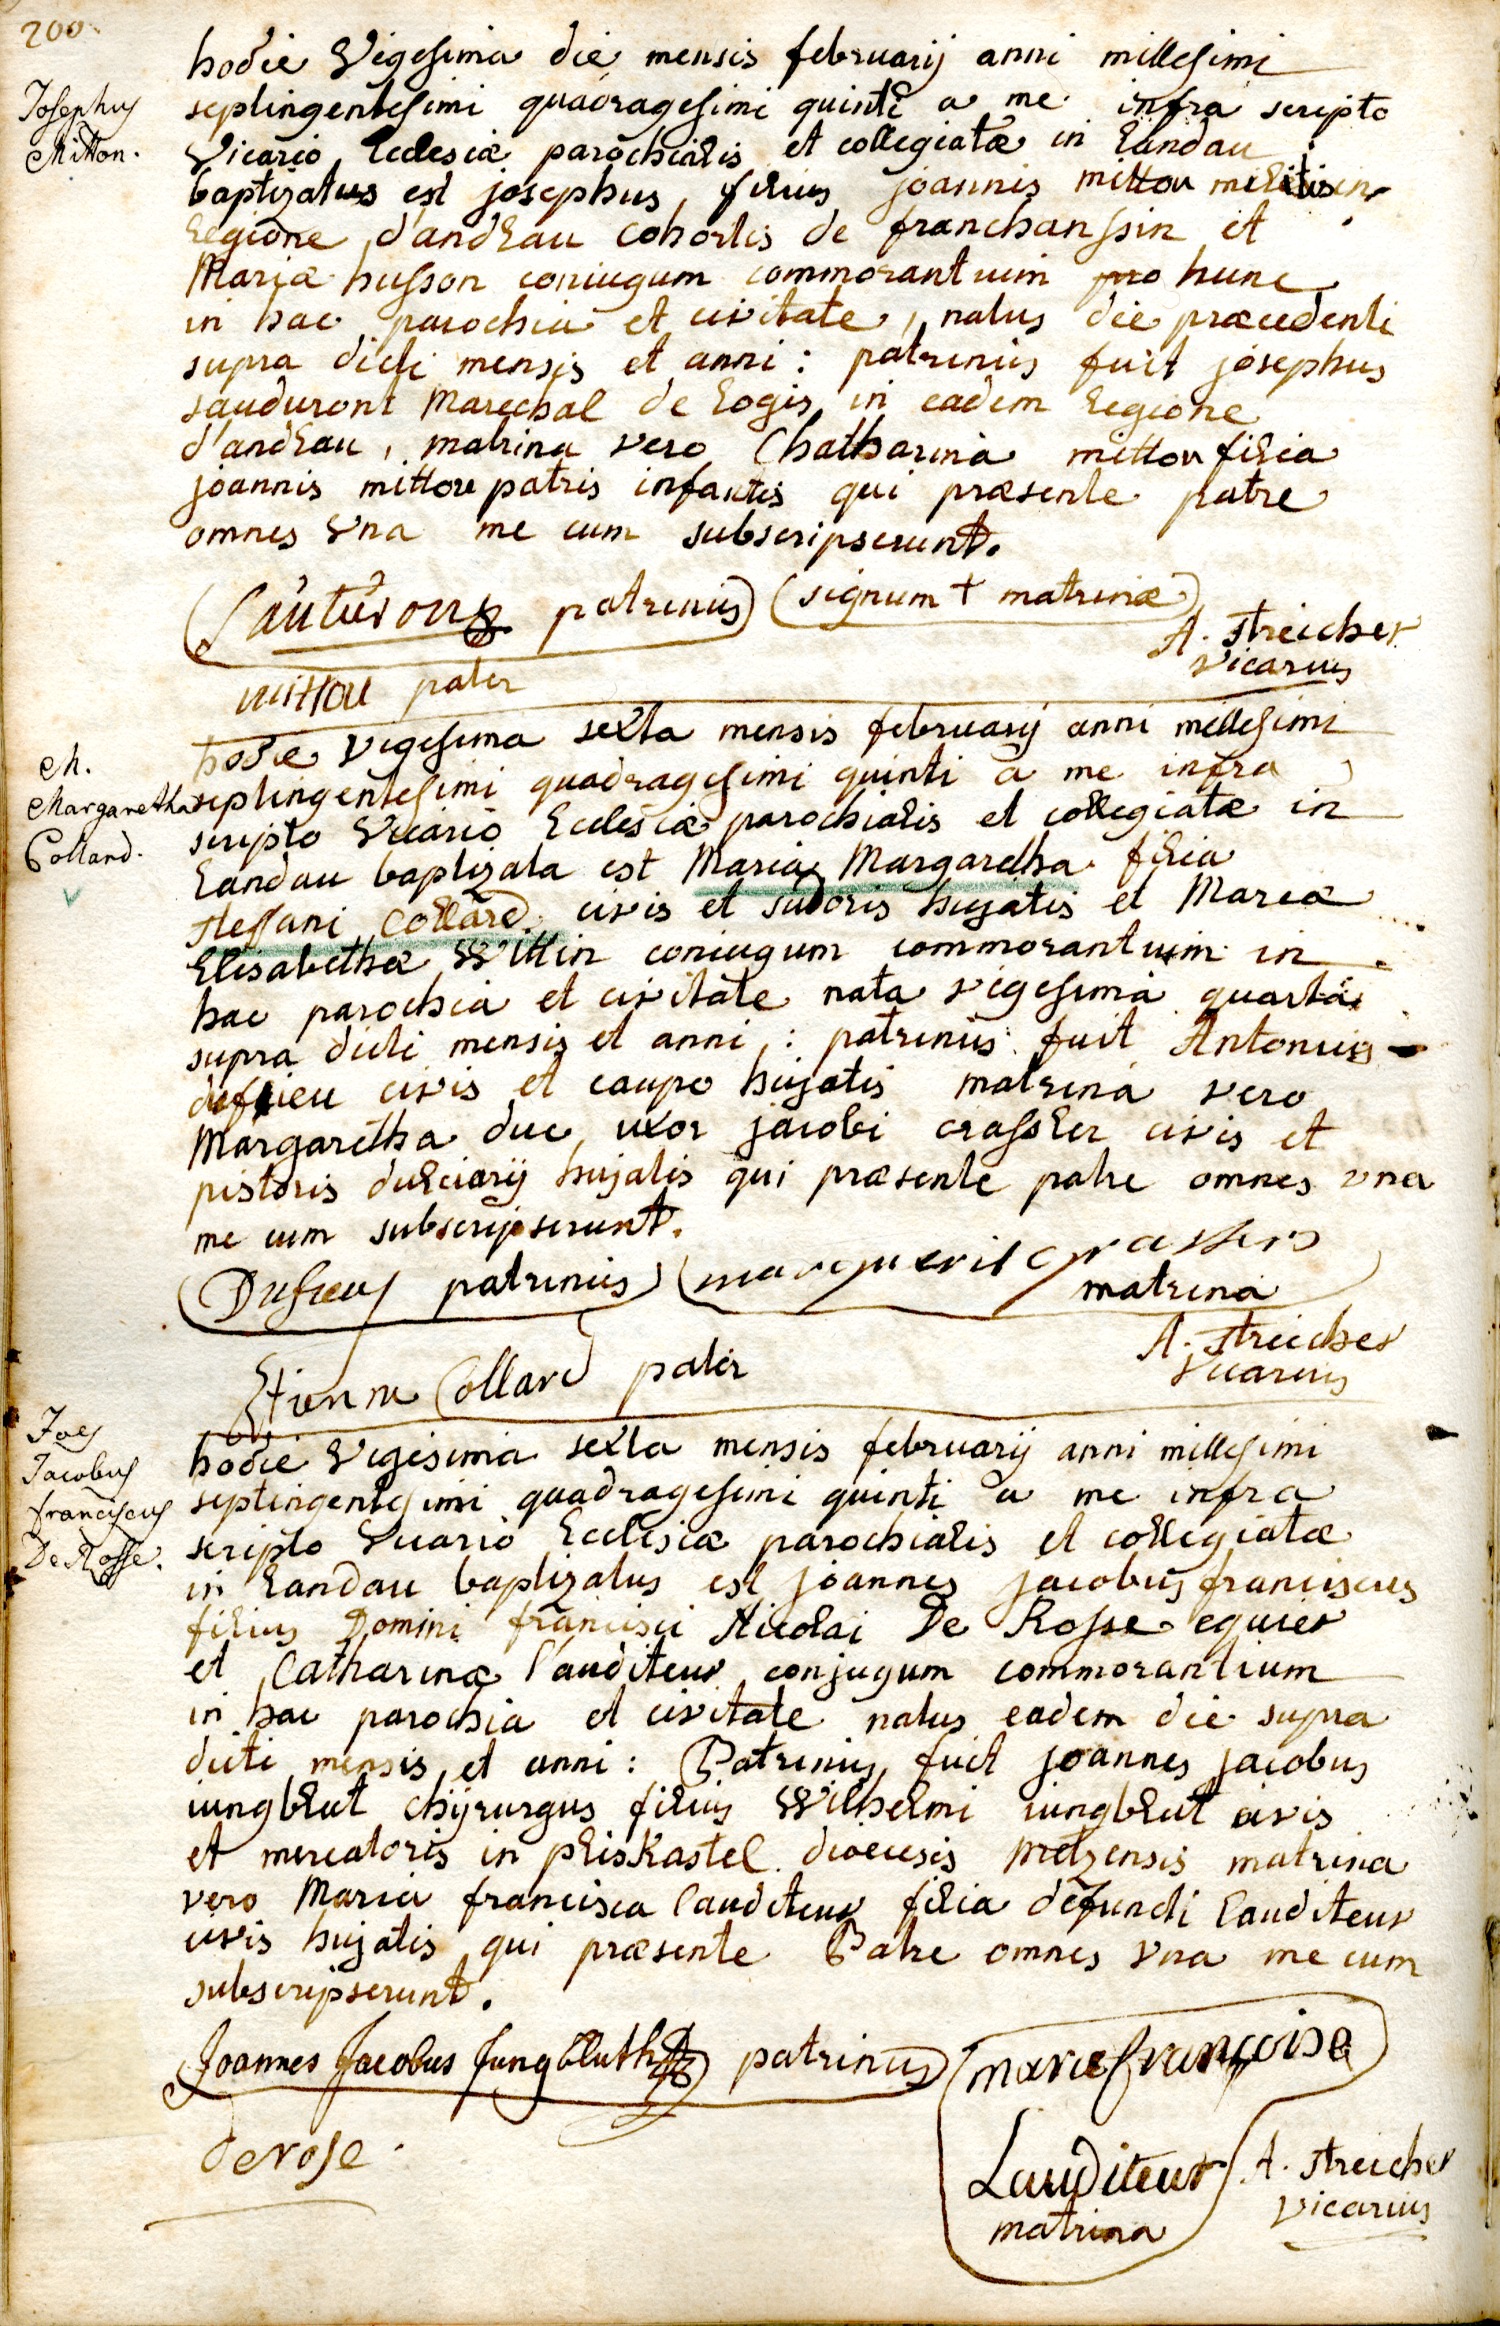 200
hodie Vigesima die mensis februarij anni millesimi
Josephus
Mitton.
septingentesimi quadragesimi quinti a me infra scripto
Vicario Ecclesiæ parochialis et collegiatæ in Landau
baptizatus est josephus filius joannis mittou militis in
legione d'andlau cohortis de franchanssin et
Maria husson coniugum commorantium pro hunc
in hac parochia et civitate, natus die præcedenti
supra dicti mensis et anni : patrinus fuit josephus
sauduront Marechal de Logis in eadem legione
d'andlau, matrina vero Chatharina mittou filia
joannis mittou patris infantis qui præsente patre
omnes Vna me cum subscripserunt.
patrinus signum + matrinæ
A. Streicher
Vicarius
mittou pater
hodie Vigesima sexta mensis februarij anni millesimi
M.
Margaretha
Collard.
septingentesimi quadragesimi quinti a me infra
scripto Vicario Ecclesiæ parochialis et collegiatæ in
Landau baptizata est Maria Margaretha filia
steffani Collard civis et sudoris hujatis et Mariæ
Elisabethæ Wittin coniugum commorantium in
hac parochia et civitate nata vigesima quarta
supra dicti mensis et anni : patrinus fuit Antonius
dufrieu civis et caupo hujatis matrina vero
Margaretha duc uxor jacobi crassler civis et
pistoris dulciarij hujatis qui præsente patre omnes vna
me cum subscripserunt.
patrinus marguerit
matrina
A. Streicher
Vicarius
Etienne Collard pater
Joës
Jacobus
franciscus
De Rosse.
hodie Vigesima sexta mensis februarij anni millesimi
septingentesimi quadragesimi quinti a me infra
scripto Vicario Ecclesiæ parochialis et collegiatæ
in Landau baptizatus est joannes jacobus franciscus
filius Domini francisci Nicolai De Rosse equier
et Catharinæ l'auditeur conjugum commorantium
in hac parochia et civitate natus eadem die supra
dicti mensis et anni : Patrinus fuit joannes jacobus
iungblut chyrurgus filius Wilhelmi iungblut civis
et mercatoris in pliskastel diœcesis Metzensis matrina
vero Maria francisca lauditeur filia defuncti lauditeur
civis hujatis qui præsente Patre omnes Vna me cum
subscripserunt.
Joannes Jacobus Jungbluth patrinus marie françoise
Lauditeur
matrina
derose
A. Streicher
Vicarius